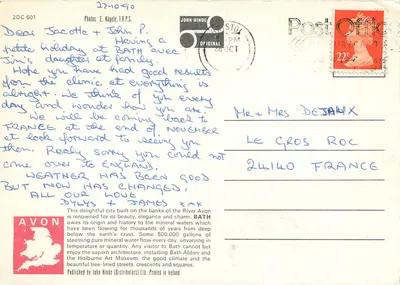 22-10-90
2DC 601
Photo: E. Nägele, F.R.P.S.
JOHN HINDE
ORIGINAL
-PM
OCT
Post Office
22
Dear Jacotte & John P.
Having a
petite holiday at BATH avec
Jim's daughter & family.
Hope you have had good results
from the clinic at everything is
alright. We think of you every
day and wonder how you are.
We will be coming back to
FRANCE at the end of NOVEMBER
et look forward to seeing you
them. Really sorry you could not
come over to ENGLAND.
WEATHER HAS BEEN GOOD
BUT NOW HAS CHANGED.
ALL OUR LOVE
DYLYS & JAMES xxx
Mr & Mrs
LE GROS ROC
24140 FRANCE
AVON
This delightful city built on the banks of the River Avon
is renowned for its beauty, elegance and charm. BATH
owes its origin and history to the mineral waters which
have been flowing for thousands of years from deep
below the earth's crust. Some 500,000 gallons of
steaming pure mineral water flow every day, unvarying in
temperature or quantity. Any visitor to Bath cannot but
enjoy the superb architecture, including Bath Abbey and
the Holburne Art Museum, the good climate and the
beautiful tree-lined streets, crescents and squares.
Published by John Hinde (Distributors) Ltd. Printed in Ireland